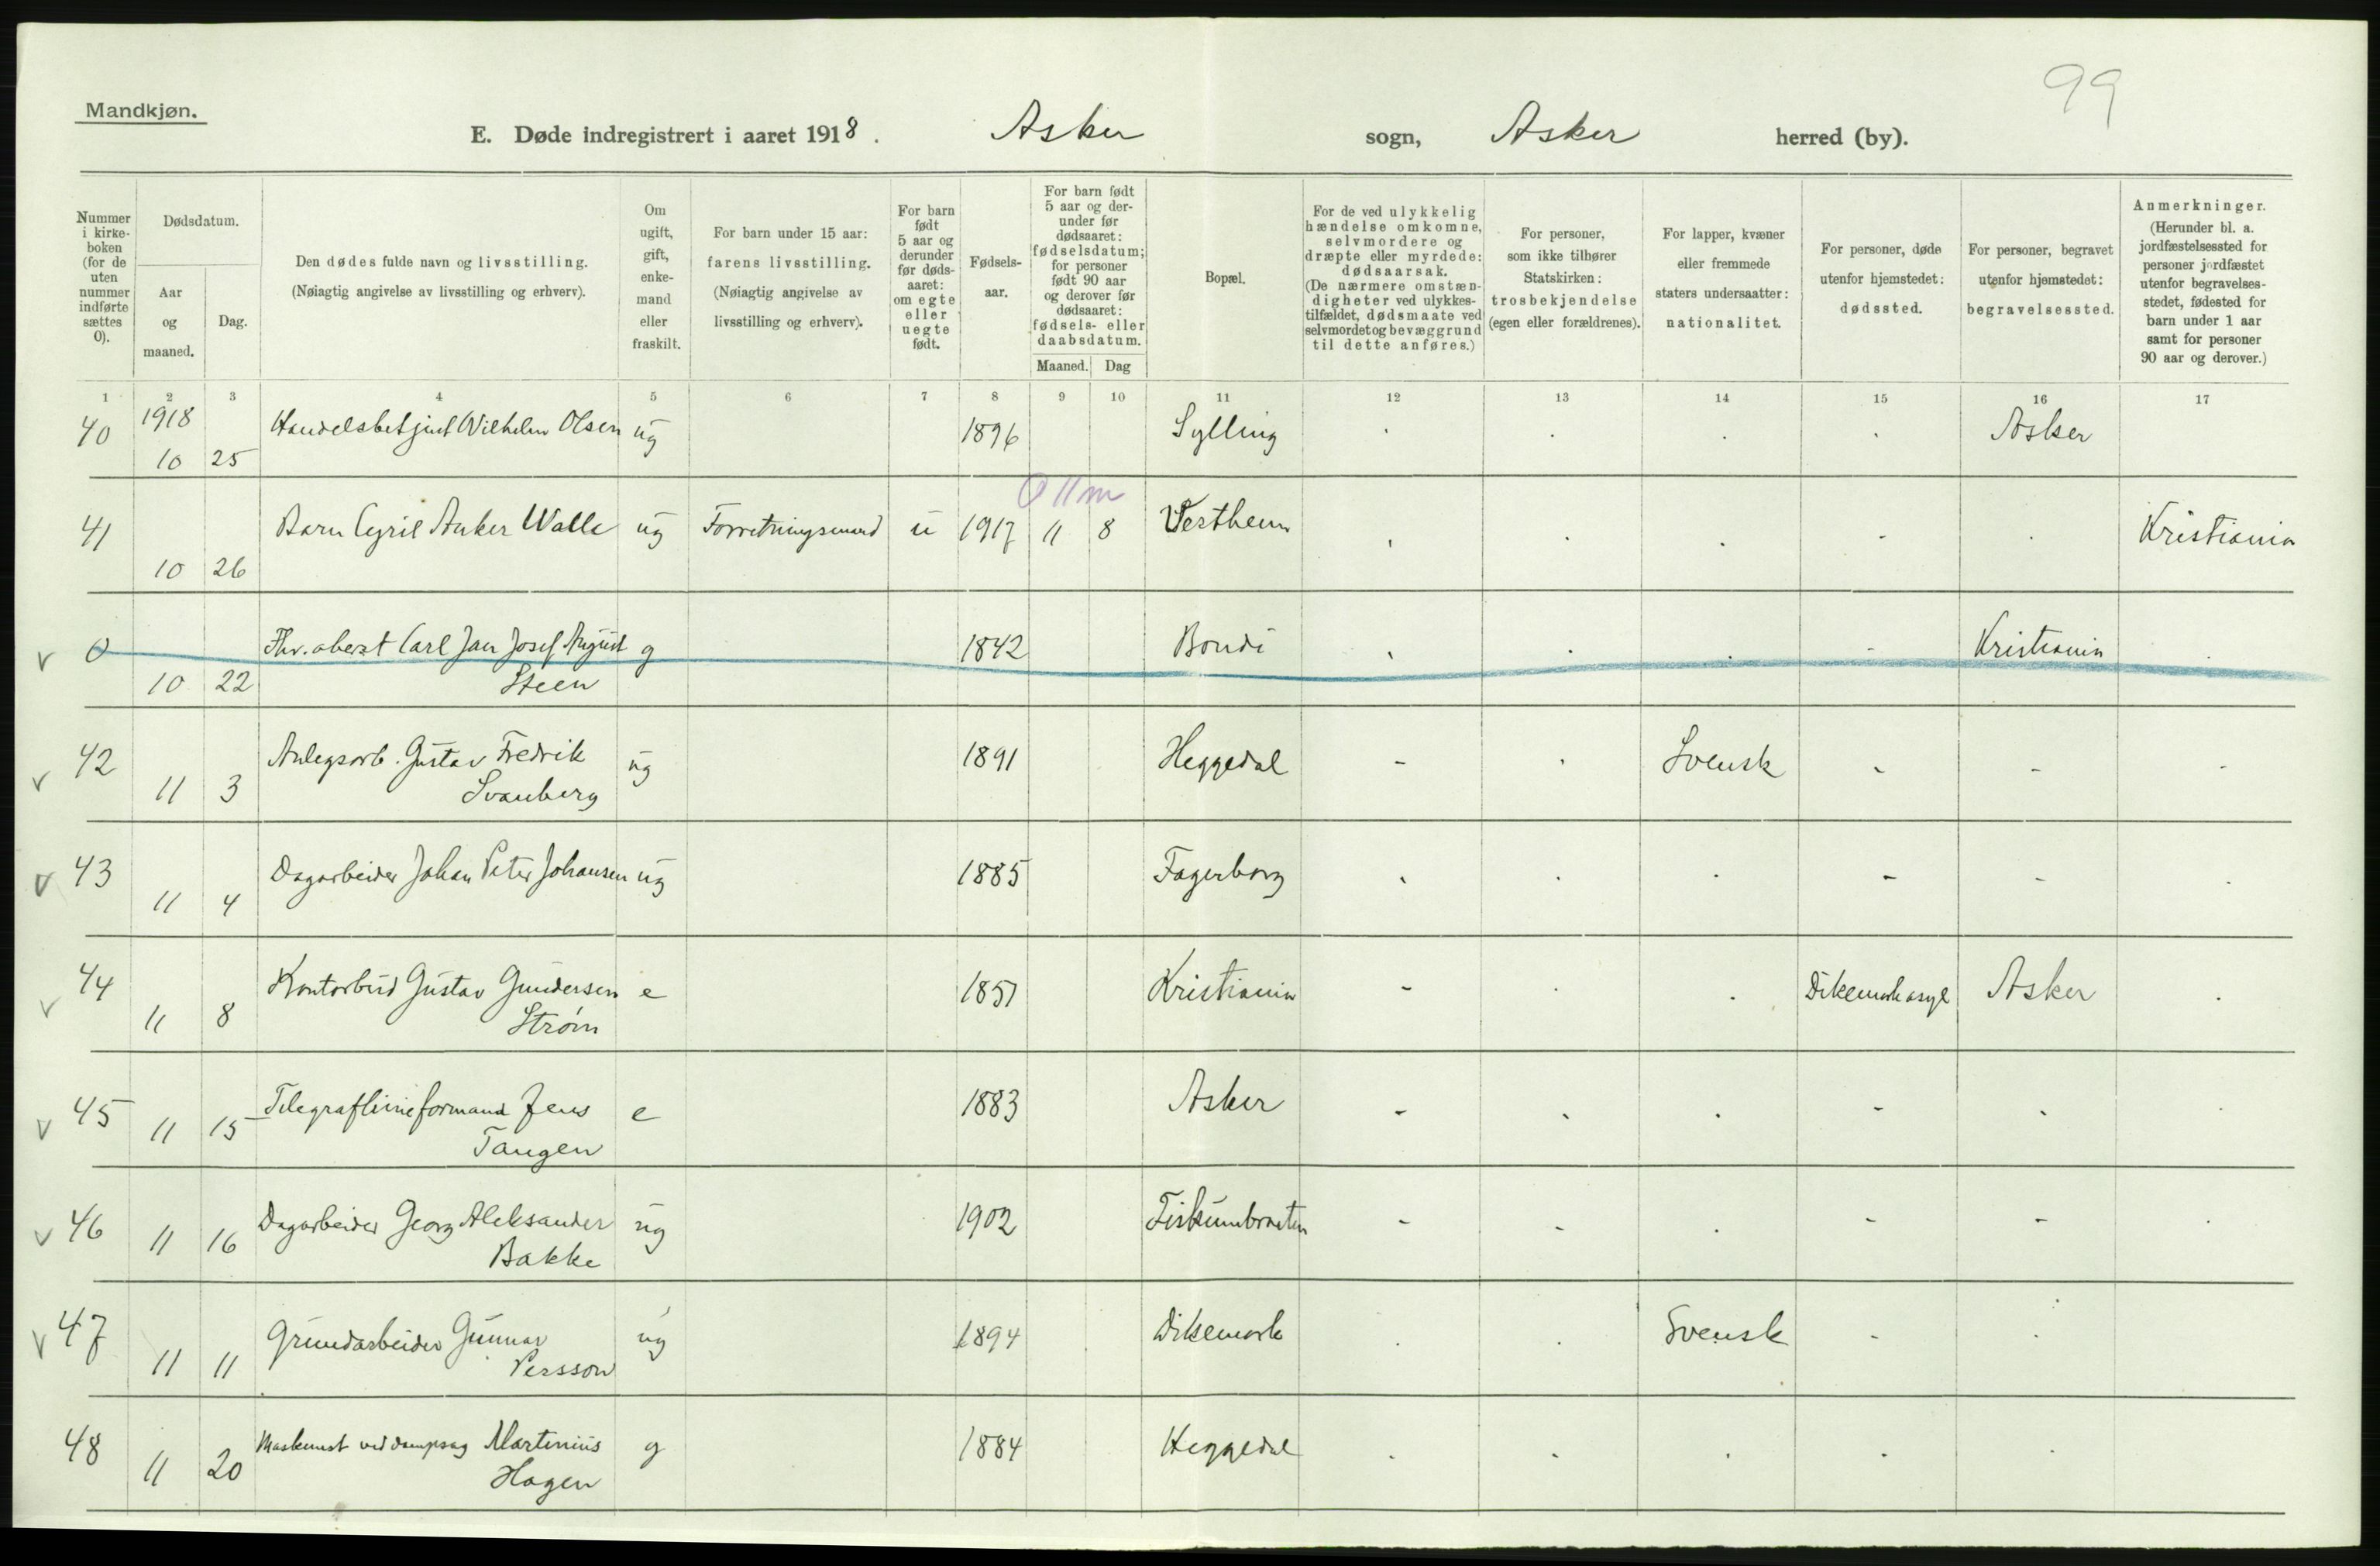 99
Mandkjøn.
E. Døde indregistrert i aaret 1918. Asker sogn, Asker herred (by).
Nummer i kirke- boken (for de uten nummer indførte sættes 0).
Dødsdatum.
Aar og maaned.
Dag.
Den dødes fulde navn og livsstilling.
(Nøiagtig angivelse av livsstilling og erhverv).
Om ugift, gift, enke- mand eller fraskilt.
For barn under 15 aar: farens livsstilling.
(Nøiagtig angivelse av livsstilling og erhverv).
For barn født 5 aar og derunder før døds- aaret: om egte eller uegte født.
Fødsels- aar.
For barn født 5 aar og der- under før dødsaaret: fødselsdatum; for personer født 90 aar og derover før dødsaaret: fødsels- eller daabsdatum.
Maaned. Dag
Bopæl.
For de ved ulykkelig hændelse omkomne, selvmordere og dræpte eller myrdede: dødsaarsak.
(De nærmere omstæn- digheter ved ulykkes- tilfældet, dødsmaate ved selvmordet og bevæggrund til dette anføres.)
For personer, som ikke tilhører Statskirken: trosbekjendelse (egen eller forældrenes).
For lapper, kvæner eller fremmede staters undersaatter: nationalitet.
For personer, døde utenfor hjemstedet: dødssted.
For personer, begravet utenfor hjemstedet: begravelsessted.
Anmerkninger.
(Herunder bl. a. jordfæstelsessted for personer jordfæstet utenfor begravelses- stedet, fødested for barn under 1 aar samt for personer 90 aar og derover.)
1 2 3 4 5 6 7 8 9 10 11 12 13 14 15 16 17
40 1918 10 25 Handelsbetjent Wilhelm Olsen ug 1896 Sylling Asker
0 11 m
41 10 26 Barn Cyril Anker Walle ug Forretningsmand u 1917 11 8 Vestheim Kristiania
v 0 10 22 Fhv. oberst Carl Jan Josef August g 1842 Bondi Kristiania
Steen
v 42 11 3 Anlegsarb. Gustav Fredrik ug 1891 Heggedal - Svensk - - -
Svanberg
v 43 11 4 Dagarbeider Johan Peter Johansen ug 1885 Fagerborg - -
v 44 11 8 Kontorbud Gustav Gundersen e 1851 Kristiania - Dikemark asyl Asker
Strøm
v 45 11 15 Telegraflinieformand Jens e 1883 Asker - -
Tangen
v 46 11 16 Dagarbeider Georg Aleksander ug 1902 Fiskumbraaten - - - -
Bakke
v 47 11 11 Grundarbeider Gunnar ug 1894 Dikemark Svensk -
Persson
48 11 20 Maskinist ved dampsag Martinius g 1884 Heggedal
Hagen